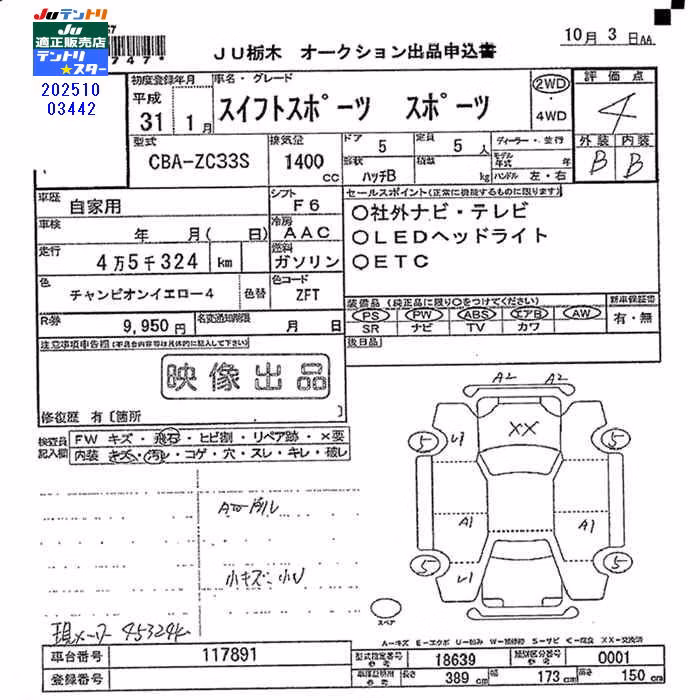 JUテントリ
JU
適正販売店
テントリ
★スター
747*
202510
03442
JU栃木 オークション出品申込書
10月 3日AA
初度登録年月
平成
31 1月
車名・グレード
スイフトスポーツ スポーツ
2WD
4WD
評価点
4
外装 内装
B B
型式
CBA-ZC33S
排気量
1400
cc
ドア
5
定員
5人
形状
ハッチB
積載
kg
ディーラー・並行
モデル年式 年
ハンドル 左・右
車歴
自家用
シフト
F6
車検
年 月( 日)
冷房
AAC
走行
4万5千324 km
燃料
ガソリン
色
チャンピオンイエロー4
色替
色コード
ZFT
R券
9,950円
名変通知期限
月 日
セールスポイント(正常に機能するものに限ります)
○社外ナビ・テレビ
○LEDヘッドライト
○ETC
装備品(純正品に限り○をつけてください)
PS PW ABS エアB AW
SR ナビ TV カワ
新車保証書
有・無
後日品
注意事項申告欄(不具合内容等は具体的に記入して下さい)
映像出品
修復歴 有〔箇所 〕
検査員
記入欄
FW キズ・飛石・ヒビ割・リペア跡・×要
内装 キズ・汚レ・コゲ・穴・スレ・キレ・破レ
小キズ、小U
現メーター 45324k
A2 A2
XX
5 5
U1
A1 A1
5 5
U1
スペア
A-キズ E-エクボ U-凹み W-補修跡 S-サビ C-腐食 XX-交換済
車台番号
117891
登録番号
型式指定番号
参考
18639
類別区分番号
参考
0001
車検証記載
参考
長さ 389cm 幅 173cm 高さ 150cm